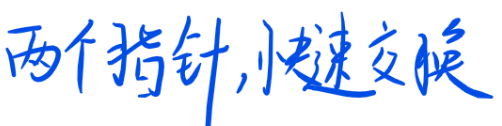 两个指针,快速交换